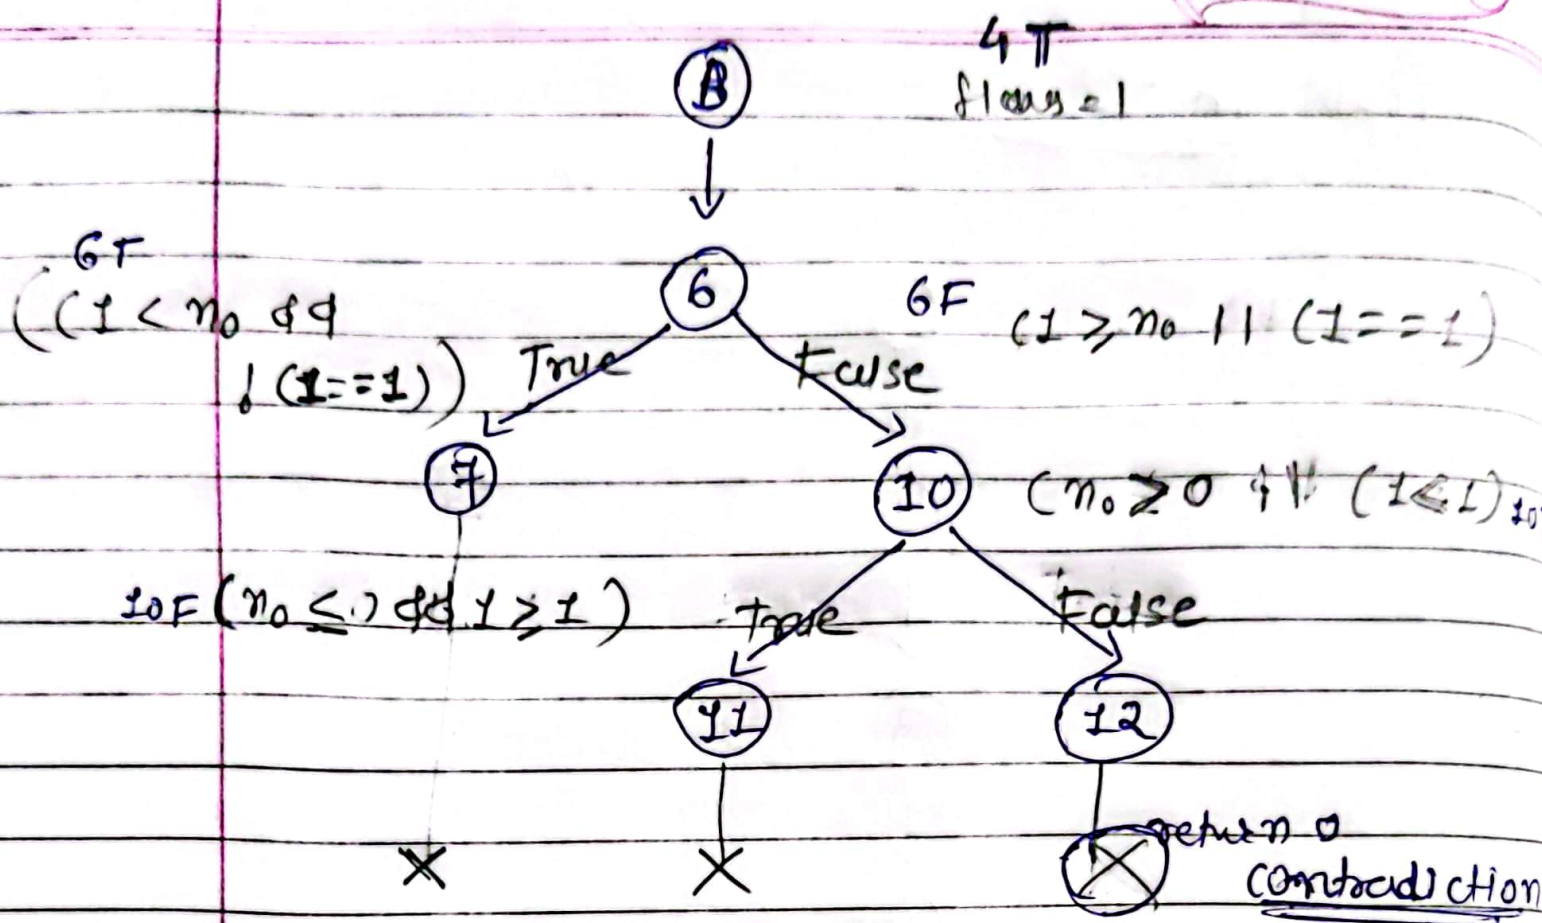 4 T
B
6T
((1 < n₀ &&
! (1==1))
6
6F
(1 ≥ n₀ || (1==1)
True
False
7
10
(n₀ ≥ 0 || (1<1) 10
10F (n₀ ≤ 0 && 1 ≥ 1)
True
False
11
12
return 0
contradiction